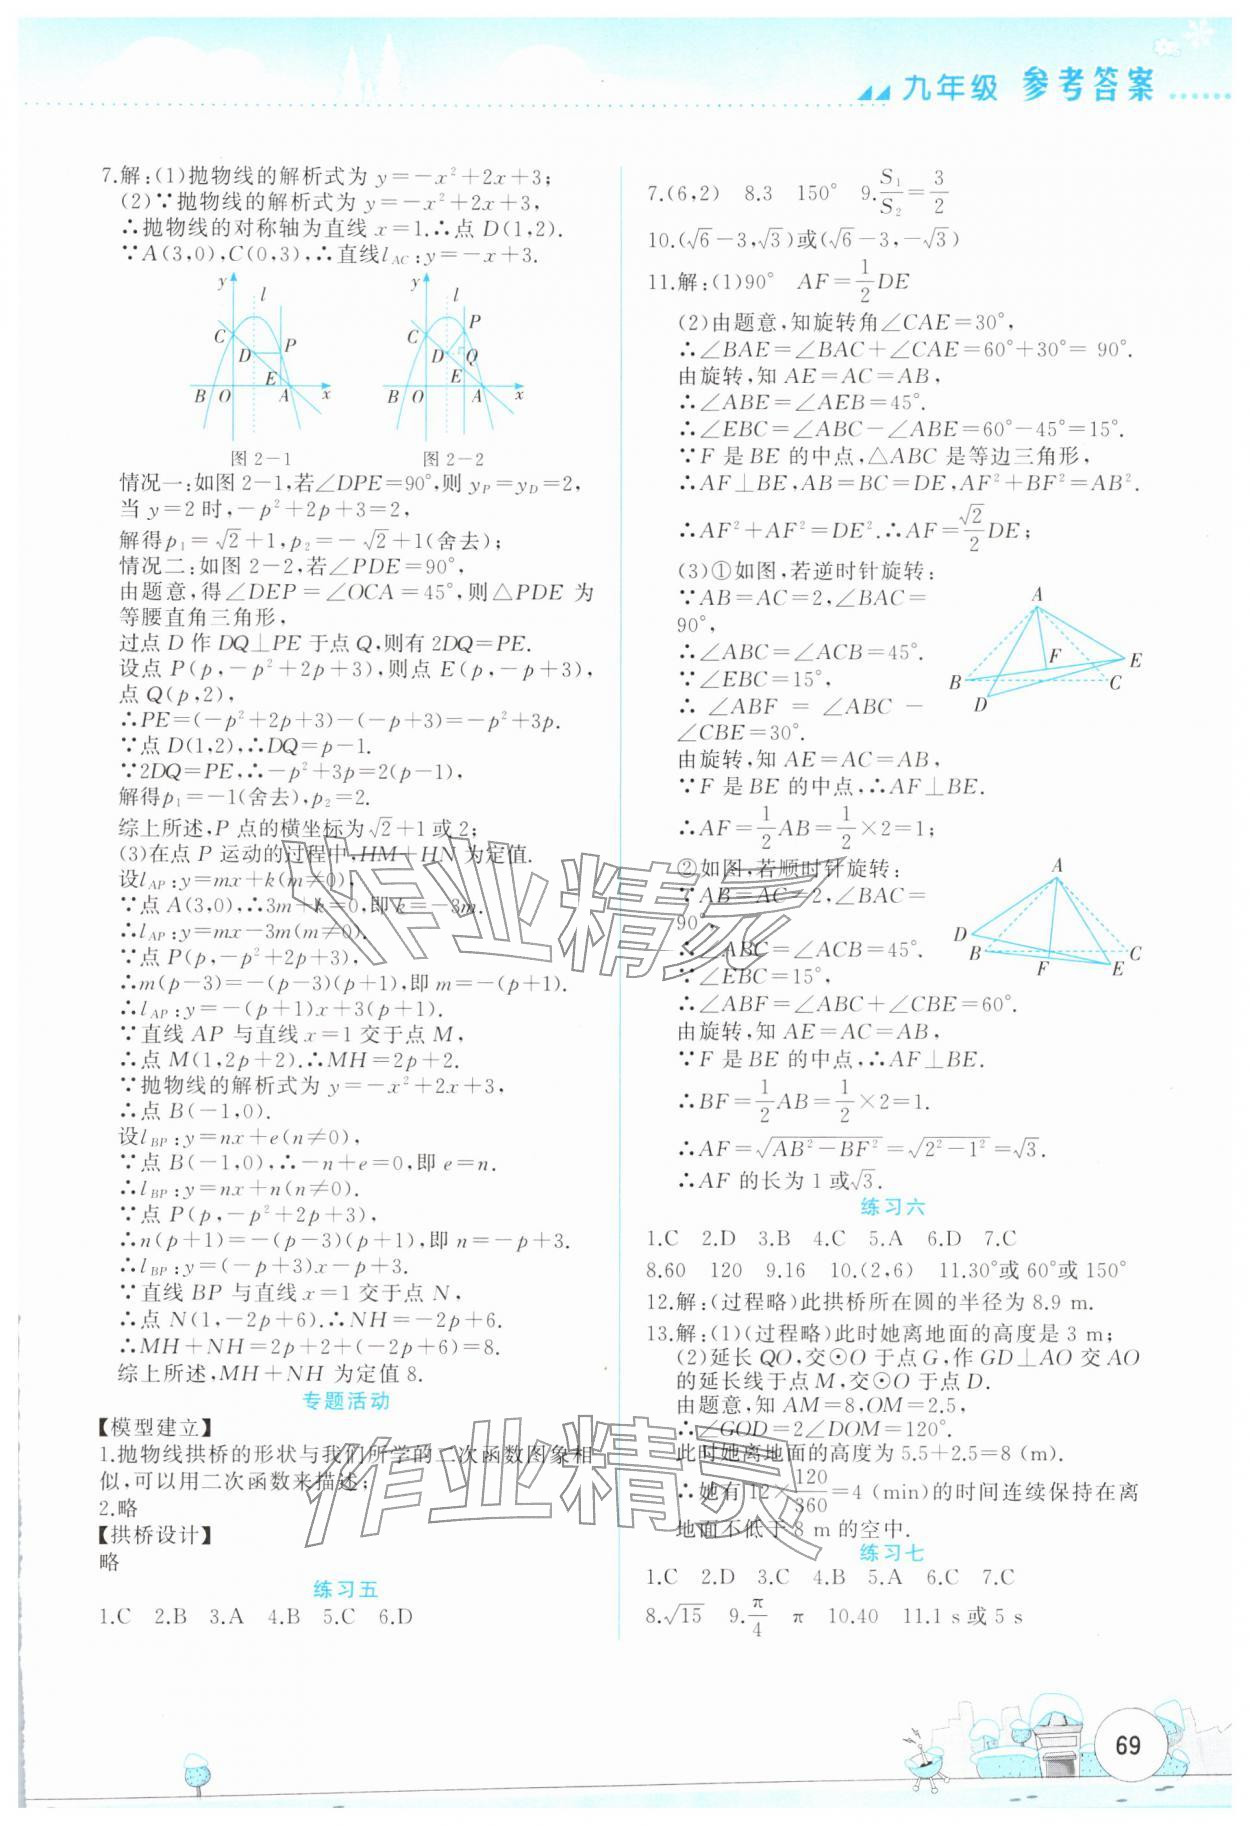 九年级 参考答案
7.解:(1)抛物线的解析式为 y=-x²+2x+3;
(2)∵抛物线的解析式为 y=-x²+2x+3,
∴抛物线的对称轴为直线 x=1.∴点 D(1,2).
∵A(3,0),C(0,3),∴直线l_AC:y=-x+3.
y l C D P E B O A x
y l C P D Q E B O A x
图 2-1 图 2-2
情况一:如图 2-1,若∠DPE=90°,则 y_P=y_D=2,
当 y=2 时,-p²+2p+3=2,
解得p₁=√2+1,p₂=-√2+1(舍去);
情况二:如图 2-2,若∠PDE=90°,
由题意,得∠DEP=∠OCA=45°,则△PDE 为
等腰直角三角形,
过点 D 作 DQ⊥PE 于点 Q,则有 2DQ=PE.
设点 P(p,-p²+2p+3),则点 E(p,-p+3),
点 Q(p,2),
∴PE=(-p²+2p+3)-(-p+3)=-p²+3p.
∵点 D(1,2),∴DQ=p-1.
∵2DQ=PE,∴-p²+3p=2(p-1),
解得p₁=-1(舍去),p₂=2.
综上所述,P 点的横坐标为√2+1或 2;
(3)在点 P 运动的过程中,HM+HN 为定值.
设l_AP:y=mx+k(m≠0),
∵点 A(3,0),∴3m+k=0,即 k=-3m.
∴l_AP:y=mx-3m(m≠0).
∵点 P(p,-p²+2p+3),
∴m(p-3)=-(p-3)(p+1),即 m=-(p+1).
∴l_AP:y=-(p+1)x+3(p+1).
∵直线 AP 与直线 x=1 交于点 M,
∴点 M(1,2p+2).∴MH=2p+2.
∵抛物线的解析式为 y=-x²+2x+3,
∴点 B(-1,0).
设l_BP:y=nx+e(n≠0),
∵点 B(-1,0),∴-n+e=0,即 e=n.
∴l_BP:y=nx+n(n≠0).
∵点 P(p,-p²+2p+3),
∴n(p+1)=-(p-3)(p+1),即 n=-p+3.
∴l_BP:y=(-p+3)x-p+3.
∵直线 BP 与直线 x=1 交于点 N,
∴点 N(1,-2p+6).∴NH=-2p+6.
∴MH+NH=2p+2+(-2p+6)=8.
综上所述,MH+NH 为定值 8.
专题活动
【模型建立】
1.抛物线拱桥的形状与我们所学的二次函数图象相
似,可以用二次函数来描述;
2.略
【拱桥设计】
略
练习五
1.C 2.B 3.A 4.B 5.C 6.D
7.(6,2) 8.3 150° 9.S₁/S₂=3/2
10.(√6-3,√3)或(√6-3,-√3)
11.解:(1)90° AF=1/2DE
(2)由题意,知旋转角∠CAE=30°,
∴∠BAE=∠BAC+∠CAE=60°+30°= 90°.
由旋转,知 AE=AC=AB,
∴∠ABE=∠AEB=45°.
∴∠EBC=∠ABC-∠ABE=60°-45°=15°.
∵F 是 BE 的中点,△ABC 是等边三角形,
∴AF⊥BE,AB=BC=DE,AF²+BF²=AB².
∴AF²+AF²=DE².∴AF=√2/2DE;
(3)①如图,若逆时针旋转:
∵AB=AC=2,∠BAC=
90°,
∴∠ABC=∠ACB=45°.
∵∠EBC=15°,
∴∠ABF=∠ABC-
∠CBE=30°.
A F E B D C
由旋转,知 AE=AC=AB,
∵F 是 BE 的中点,∴AF⊥BE.
∴AF=1/2AB=1/2×2=1;
②如图,若顺时针旋转:
∵AB=AC=2,∠BAC=
90°,
∴∠ABC=∠ACB=45°.
∵∠EBC=15°,
∴∠ABF=∠ABC+∠CBE=60°.
A D B F E C
由旋转,知 AE=AC=AB,
∵F 是 BE 的中点,∴AF⊥BE.
∴BF=1/2AB=1/2×2=1.
∴AF=√(AB²-BF²)=√(2²-1²)=√3.
∴AF 的长为 1 或√3.
练习六
1.C 2.D 3.B 4.C 5.A 6.D 7.C
8.60 120 9.16 10.(2,6) 11.30°或 60°或 150°
12.解:(过程略)此拱桥所在圆的半径为 8.9 m.
13.解:(1)(过程略)此时她离地面的高度是 3 m;
(2)延长 QO,交⊙O 于点 G,作 GD⊥AO 交 AO
的延长线于点 M,交⊙O 于点 D.
由题意,知 AM=8,OM=2.5,
∴∠GOD=2∠DOM=120°.
此时她离地面的高度为 5.5+2.5=8 (m).
∴她有 12×120/360=4 (min)的时间连续保持在离
地面不低于 8 m 的空中.
练习七
1.C 2.D 3.C 4.B 5.A 6.C 7.C
8.√15 9.π/4 π 10.40 11.1 s或 5 s
作业精灵
作业精灵
69